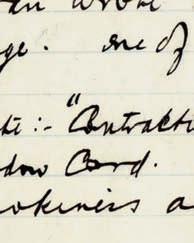 an wrote
ge. one of
te :- "Contractio
dow Card.
okeniss a